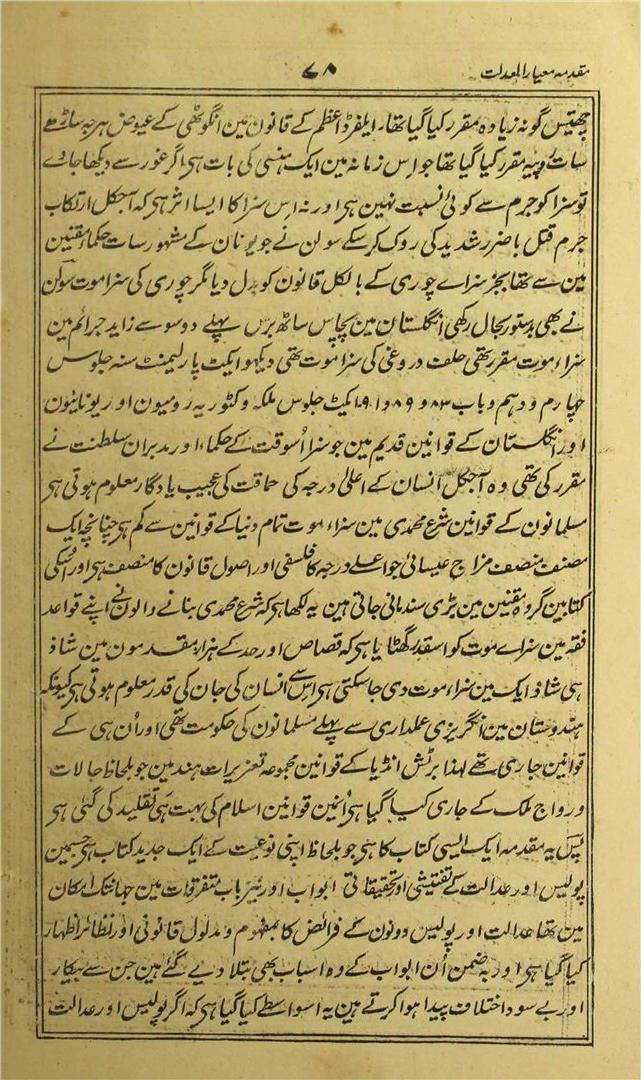 مقدمہ معیار المعدلت ۷۸
چھتیس گونہ زیادہ مقرر کیا گیا تھا۔ ایلفرڈ اعظم کے قانون مین انگوٹھی کے عیوض ہرجہ ساڑھے
سات روپیہ مقرر کیا گیا تھا جو اس زمانہ مین ایک ہنسی کی بات ہی اگر غور سے دیکھا جاوے
تو سزا کو جرم سے کوئی نسبت نہین ہی اور نہ اس سزا کا ایسا اثر ہی کہ آجکل ارتکاب
جرم قتل با ضرر شدید کی روک کر سکے سولن نے جو یونان کے مشہور سات حکماء مقنین
مین سے تھا بجز سزاے چوری کے بالکل قانون کو بدل دیا مگر چوری کی سزا موت سولن
نے بھی بدستور بحال رکھی انگلستان مین پچاس ساٹھ برس پہلے دو سو سے زاید جرائم مین
سزاء موت مقرر تھی حلف دروغی کی سزا موت تھی دیکھو ایکٹ پارلیمنٹ سنہ جلوس
چہارم و دہم و باب ۸۳ و ۸۹ و ۹۱ ایکٹ جلوس ملکہ وکٹوریہ رومیون اور یونانیون
اور انگلستان کے قوانین قدیم مین جو سزا اسوقت کے حکماء اور مدبران سلطنت نے
مقرر کی تھی وہ آجکل انسان کے اعلیٰ درجہ کی حماقت کی عجیب یادگار معلوم ہوتی ہی
مسلمانون کے قوانین شرع محمدی مین سزاء موت تمام دنیا کے قوانین سے کم ہی چنانچہ ایک
مصنف منصف مزاج عیسائی جو اعلے درجہ کا فلسفی اور اصول قانون کا منصف ہی اور اسکی
کتابین گروہ مقنین مین بڑی سند مانی جاتی ہین یہ لکھا ہی کہ شرع محمدی بنانے والون نے اپنے قواعد
فقہ مین سزاے موت کو اسقدر گھٹایا ہی کہ قصاص اور حد کے ہزار مقدمون مین شاذ
ہی شاذ ایک مین سزاء موت دی جا سکتی ہی اس سے انسان کی جان کی قدر معلوم ہوتی ہی کیونکہ
ہندوستان مین انگریزی عملداری سے پہلے مسلمانون کی حکومت تھی اور اُن ہی کے
قوانین جاری تھے لہذا برٹش انڈیا کے قوانین مجموعہ تعزیرات ہند مین جو بلحاظ حالات
و رواج ملک کے جاری کیا گیا ہی اُنین قوانین اسلام کی بہت ہی تقلید کی گئی ہی
پس یہ مقدمہ ایک ایسی کتاب کا ہی جو بلحاظ اپنی نوعیت کے ایک جدید کتاب ہی جسمین
پولیس اور عدالت کے تفتیشی اور تحقیقاتی ابواب اور نیز باب متفرقات مین جہانتک امکان
مین تھا عدالت اور پولیس دونون کے فرائض کا بمفہوم و مدلول قانونی اور نظائر اظہار
کیا گیا ہی اور بہ ضمن اُن ابواب کے وہ اسباب بھی بتلا دیے گئے ہین جن سے بیکار
اور بے سود اختلاف پیدا ہوا کرتے ہین یہ اسواسطے کیا گیا ہی کہ اگر پولیس اور عدالت